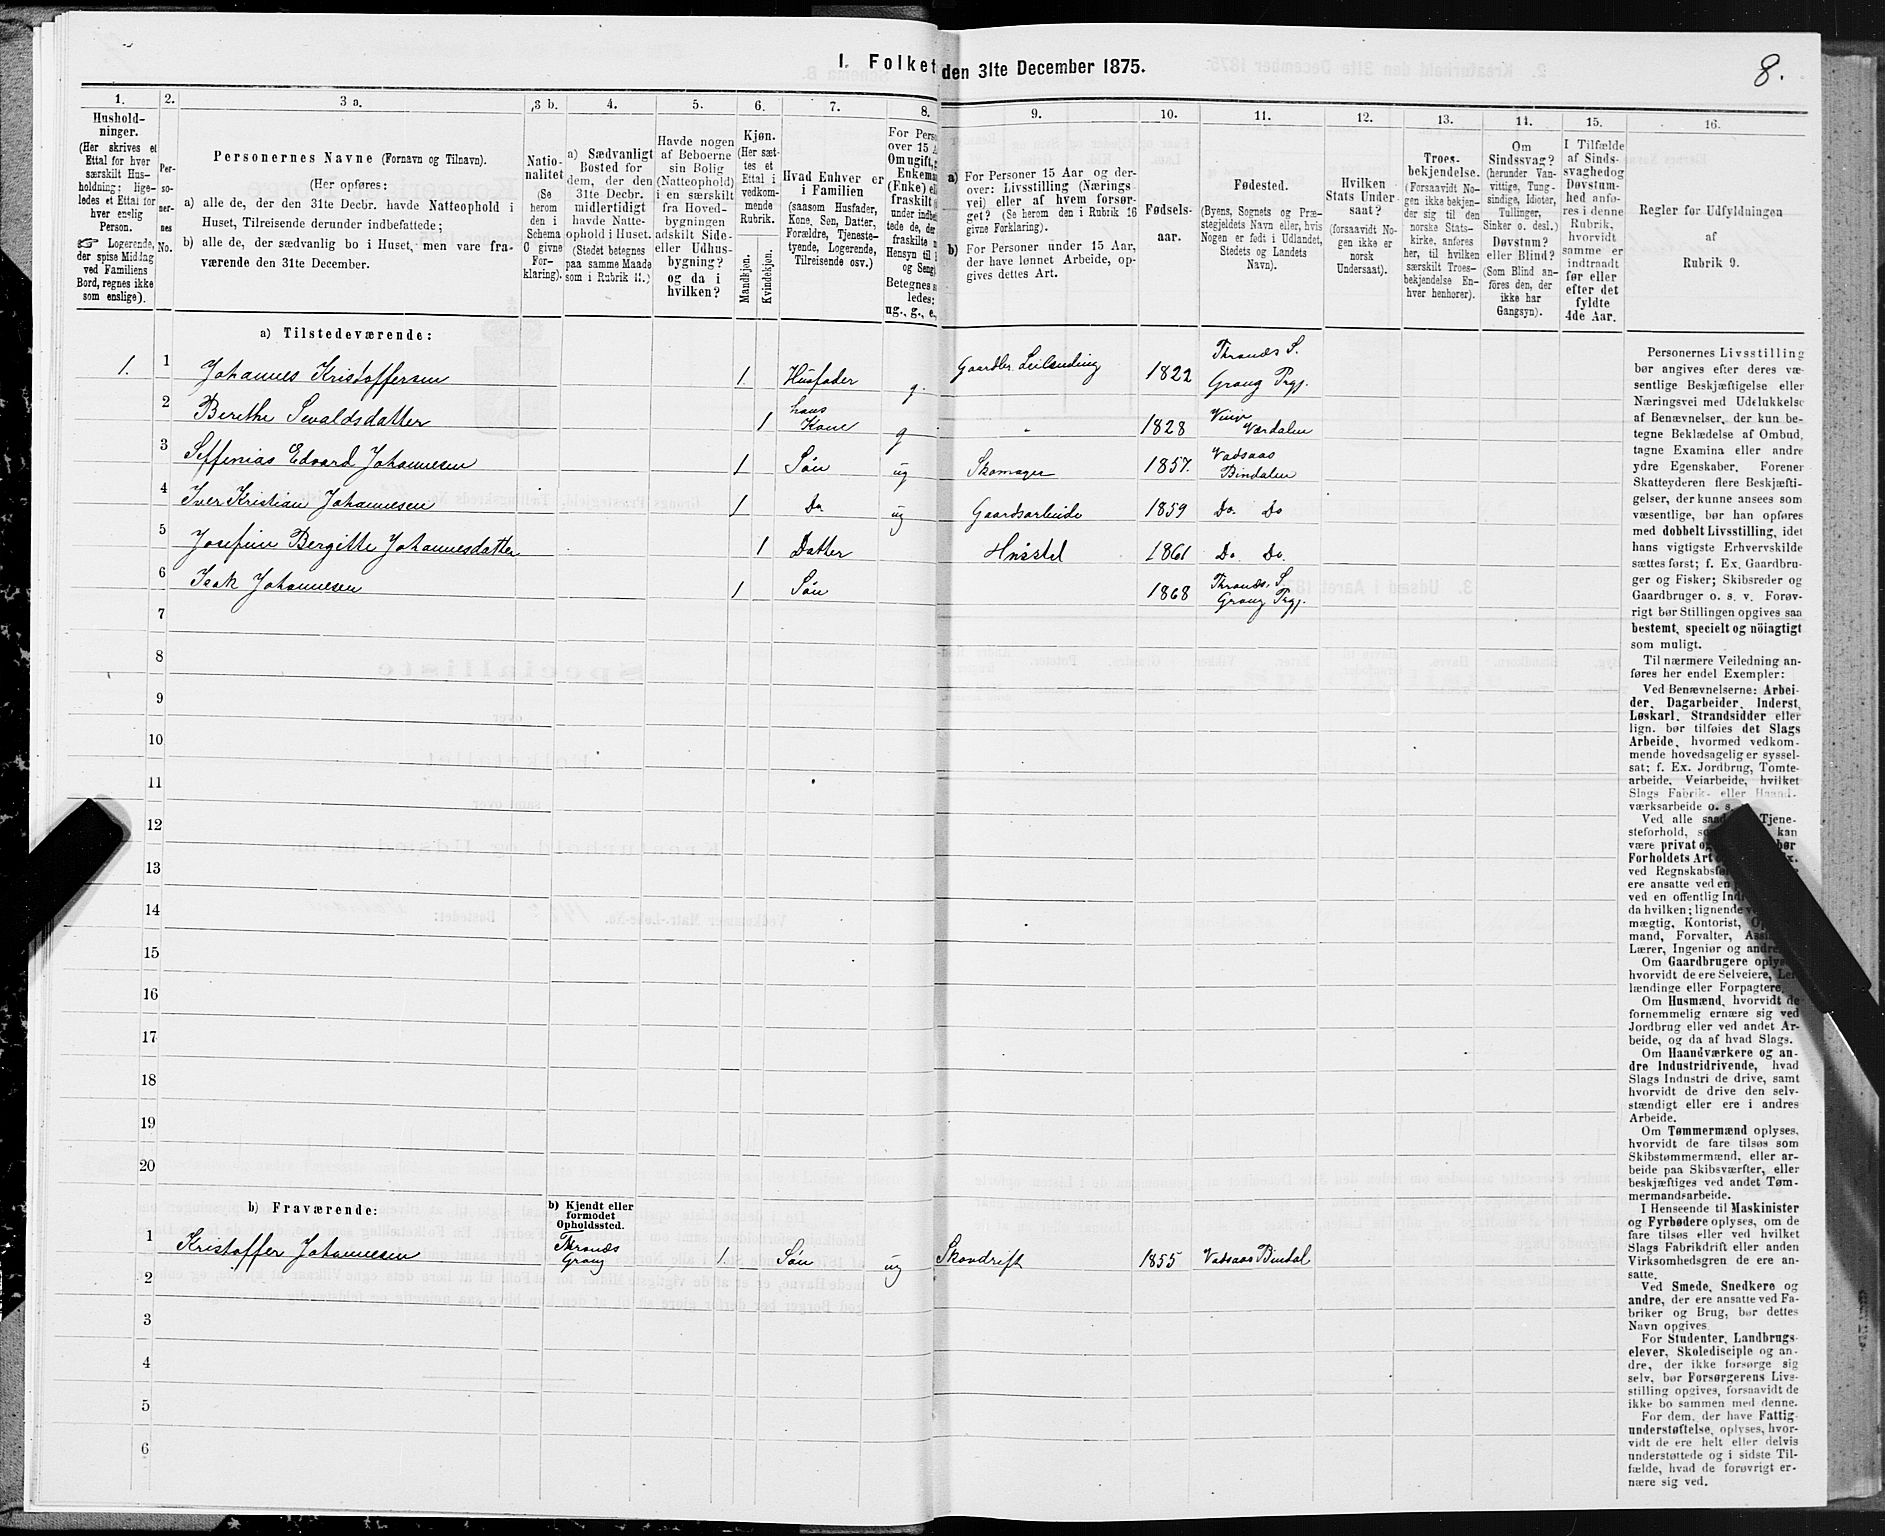 I. Folket den 31te December 1875.
8.
1.
Hushold-
ninger.
(Her skrives et
Ettal for hver
særskilt Hus-
holdning; lige-
ledes et Ettal for
hver enslig
Person.
☞ Logerende,
der spise Middag
ved Familiens
Bord, regnes ikke
som enslige).
2.
Per-
so-
ner-
nes
No.
3 a.
Personernes Navne (Fornavn og Tilnavn).
(Her opføres:
a) alle de, der den 31te Decbr. havde Natteophold i
Huset, Tilreisende derunder indbefattede;
b) alle de, der sædvanlig bo i Huset, men vare fra-
værende den 31te December.
3 b.
Natio-
nalitet
(Se
herom
den i
Schema
C givne
For-
klaring).
4.
a) Sædvanligt
Bosted for
dem, der den
31te Decbr.
midlertidigt
havde Natte-
ophold i Huset.
(Stedet betegnes
paa samme Maade
som i Rubrik 11.)
5.
Havde nogen
af Beboerne
sin Bolig
(Natteophold)
i en særskilt
fra Hoved-
bygningen
adskilt Side-
eller Udhus-
bygning?
og da i
hvilken?
6.
Kjøn.
(Her sæt-
tes et
Ettal i
vedkom-
mende
Rubrik.
Mandkjøn.
Kvindekjøn.
7.
Hvad Enhver er
i Familien
(saasom Husfader,
Kone, Søn, Datter,
Forældre, Tjeneste-
tyende, Logerende,
Tilreisende osv.)
8.
For Perso
over 15
Om ugift,
Enkema
(Enke) el
fraskilt
under indbe
tede de, der
fraskilte
Hensyn til
og Seng)
Betegnes
ledes:
ug., g., e.,
9.
a) For Personer 15 Aar og der-
over: Livsstilling (Nærings-
vei) eller af hvem forsør-
get? (Se herom den i Rubrik 16
givne Forklaring).
b) For Personer under 15 Aar,
der have lønnet Arbeide, op-
gives dettes Art.
10.
Fødsels-
aar.
11.
Fødested.
(Byens, Sognets og Præ-
stegjeldets Navn eller, hvis
Nogen er født i Udlandet,
Stedets og Landets
Navn).
12.
Hvilken
Stats Under
saat?
(forsaavidt No-
gen ikke er
norsk
Undersaat).
13.
Troes-
bekjendelse.
(Forsaavidt No-
gen ikke bekjen-
der sig til den
norske Stats-
kirke, anføres
her, til hvilken
særskilt Troes-
bekjendelse En-
hver henhører).
14.
Om
Sindssvag?
(herunder Van-
vittige, Tung-
sindige, Idioter,
Tullinger,
Sinker o. desl.)
Døvstum?
eller Blind?
(Som Blind an-
føres den, der
ikke har
Gangsyn).
15.
I Tilfælde
af Sinds-
svaghed og
Døvstum-
hed anfø-
res i denne
Rubrik,
hvorvidt
samme er
indtraadt
før eller
efter det
fyldte
4de Aar.
16.
Regler for Udfyldningen
af
Rubrik 9.
a) Tilstedeværende:
1. 1 Johannes Kristoffersen 1. Husfader g. Gaardbr. Leilending 1822 Thronds S. Grong Prgj.
2 Berethe Sevaldsdatter 1 hans Kone g " 1828 Værdalen
3 Seffenias Edvard Johannesen 1 Søn ug Skomager 1857. Vadsaas Bindalen
4 Iver Kristian Johannesen 1 Do. ug Gaardsarbeide 1859 Do. Do
5 Josefine Bergitte Johannesdatter 1 Datter Husstel 1861 Do. Do.
6 Isak Johannesen 1 Søn 1868 Thronds. S. Grong Prgj.
7
8
9
10
11
12
13
14
15
16
17
18
19
20
b) Fraværende:
b) Kjendt eller
formodet
Opholdssted.
1 Kristoffer Johannesen Thronds Grong 1. Søn ug Skovdrift 1855 Vadsaas Bindal
2
3
4
5
6
Personernes Livsstilling
bør angives efter deres væ-
sentlige Beskjæftigelse eller
Næringsvei med Udelukkelse
af Benævnelser, der kun be-
tegne Beklædelse af Ombud,
tagne Examina eller andre
ydre Egenskaber. Forener
Skatteyderen flere Beskjæfti-
gelser, der kunne ansees som
væsentlige, bør han opføres
med dobbelt Livsstilling, idet
hans vigtigste Erhvervskilde
sættes først; f. Ex. Gaardbru-
ger og Fisker; Skibsreder og
Gaardbruger o. s. v. Forøv-
rigt bør Stillingen opgives saa
bestemt, specielt og nöiagtigt
som muligt.
Til nærmere Veiledning an-
føres her endel Exempler:
Ved Benævnelserne: Arbei-
der, Dagarbeider, Inderst,
Løskarl, Strandsidder eller
lign. bør tilføies det Slags
Arbeide, hvormed vedkom-
mende hovedsagelig er syssel-
sat; f. Ex. Jordbrug, Tomte-
arbeide, Veiarbeide, hvilket
Slags Fabrik- eller Haand-
værksarbeide o. s.
Ved alle Tjene-
steforhold, kan
være privat bør
Forholdets Art
ved Regnskabsfør
ere ansatte ved en
ved en offentlig
da hvilken; lignende
mægtig, Kontorist,
mand, Forvalter,
Lærer, Ingeniør og andre
Om Gaardbrugere oplyses
hvorvidt de ere Selveiere, Lei-
lændinge eller Forpagtere.
Om Husmænd, hvorvidt de
fornemmelig ernære sig ved
Jordbrug eller ved andet Ar-
beide, og da af hvad Slags.
Om Haandværkere og an-
dre Industridrivende, hvad
Slags Industri de drive, samt
hvorvidt de drive den selv-
stændigt eller ere i andres
Arbeide.
Om Tømmermænd oplyses,
hvorvidt de fare tilsøs som
Skibstømmermænd, eller ar-
beide paa Skibsværfter, eller
beskjæftiges ved andet Tøm-
mermandsarbeide.
I Henseende til Maskinister
og Fyrbødere oplyses, om de
fare tilsøs eller ved hvilket
Slags Fabrikdrift eller anden
Virksomhedsgren de ere an-
satte.
Ved Smede, Snedkere og
andre, der ere ansatte ved Fa-
briker og Brug, bør dettes
Navn opgives.
For Studenter, Landbrugs-
elever, Skoledisciple og an-
dre, der ikke forsørge sig
selv, bør Forsørgerens Livs-
stilling opgives, forsaavidt de
ikke bo sammen med denne.
For dem, der have Fattig-
understøttelse, oplyses, hvor-
vidt de ere helt eller delvis
understøttede og i sidste Til-
fælde, hvad de forøvrigt er-
nære sig ved.